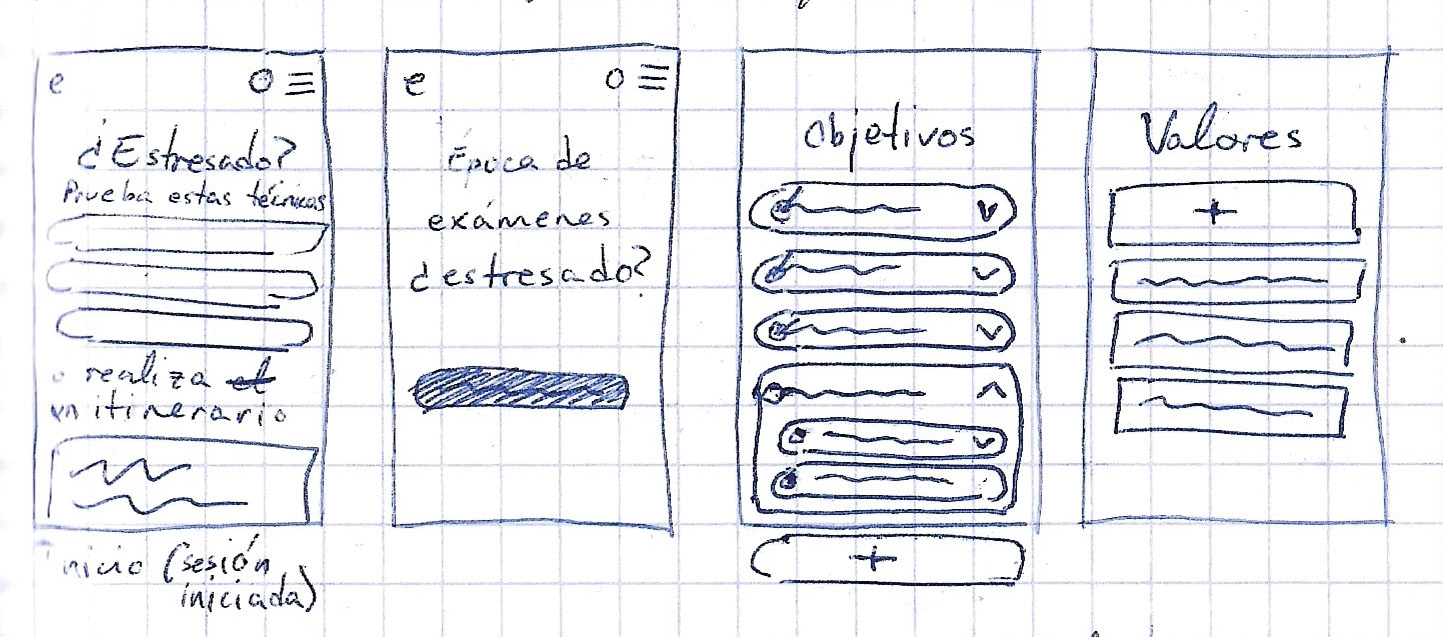 e
¿Estresado?
Prueba estas técnicas
o realiza el
un itinerario
inicio (sesión
iniciada)
e
Época de
exámenes
¿estresado?
Objetivos
+
Valores
+